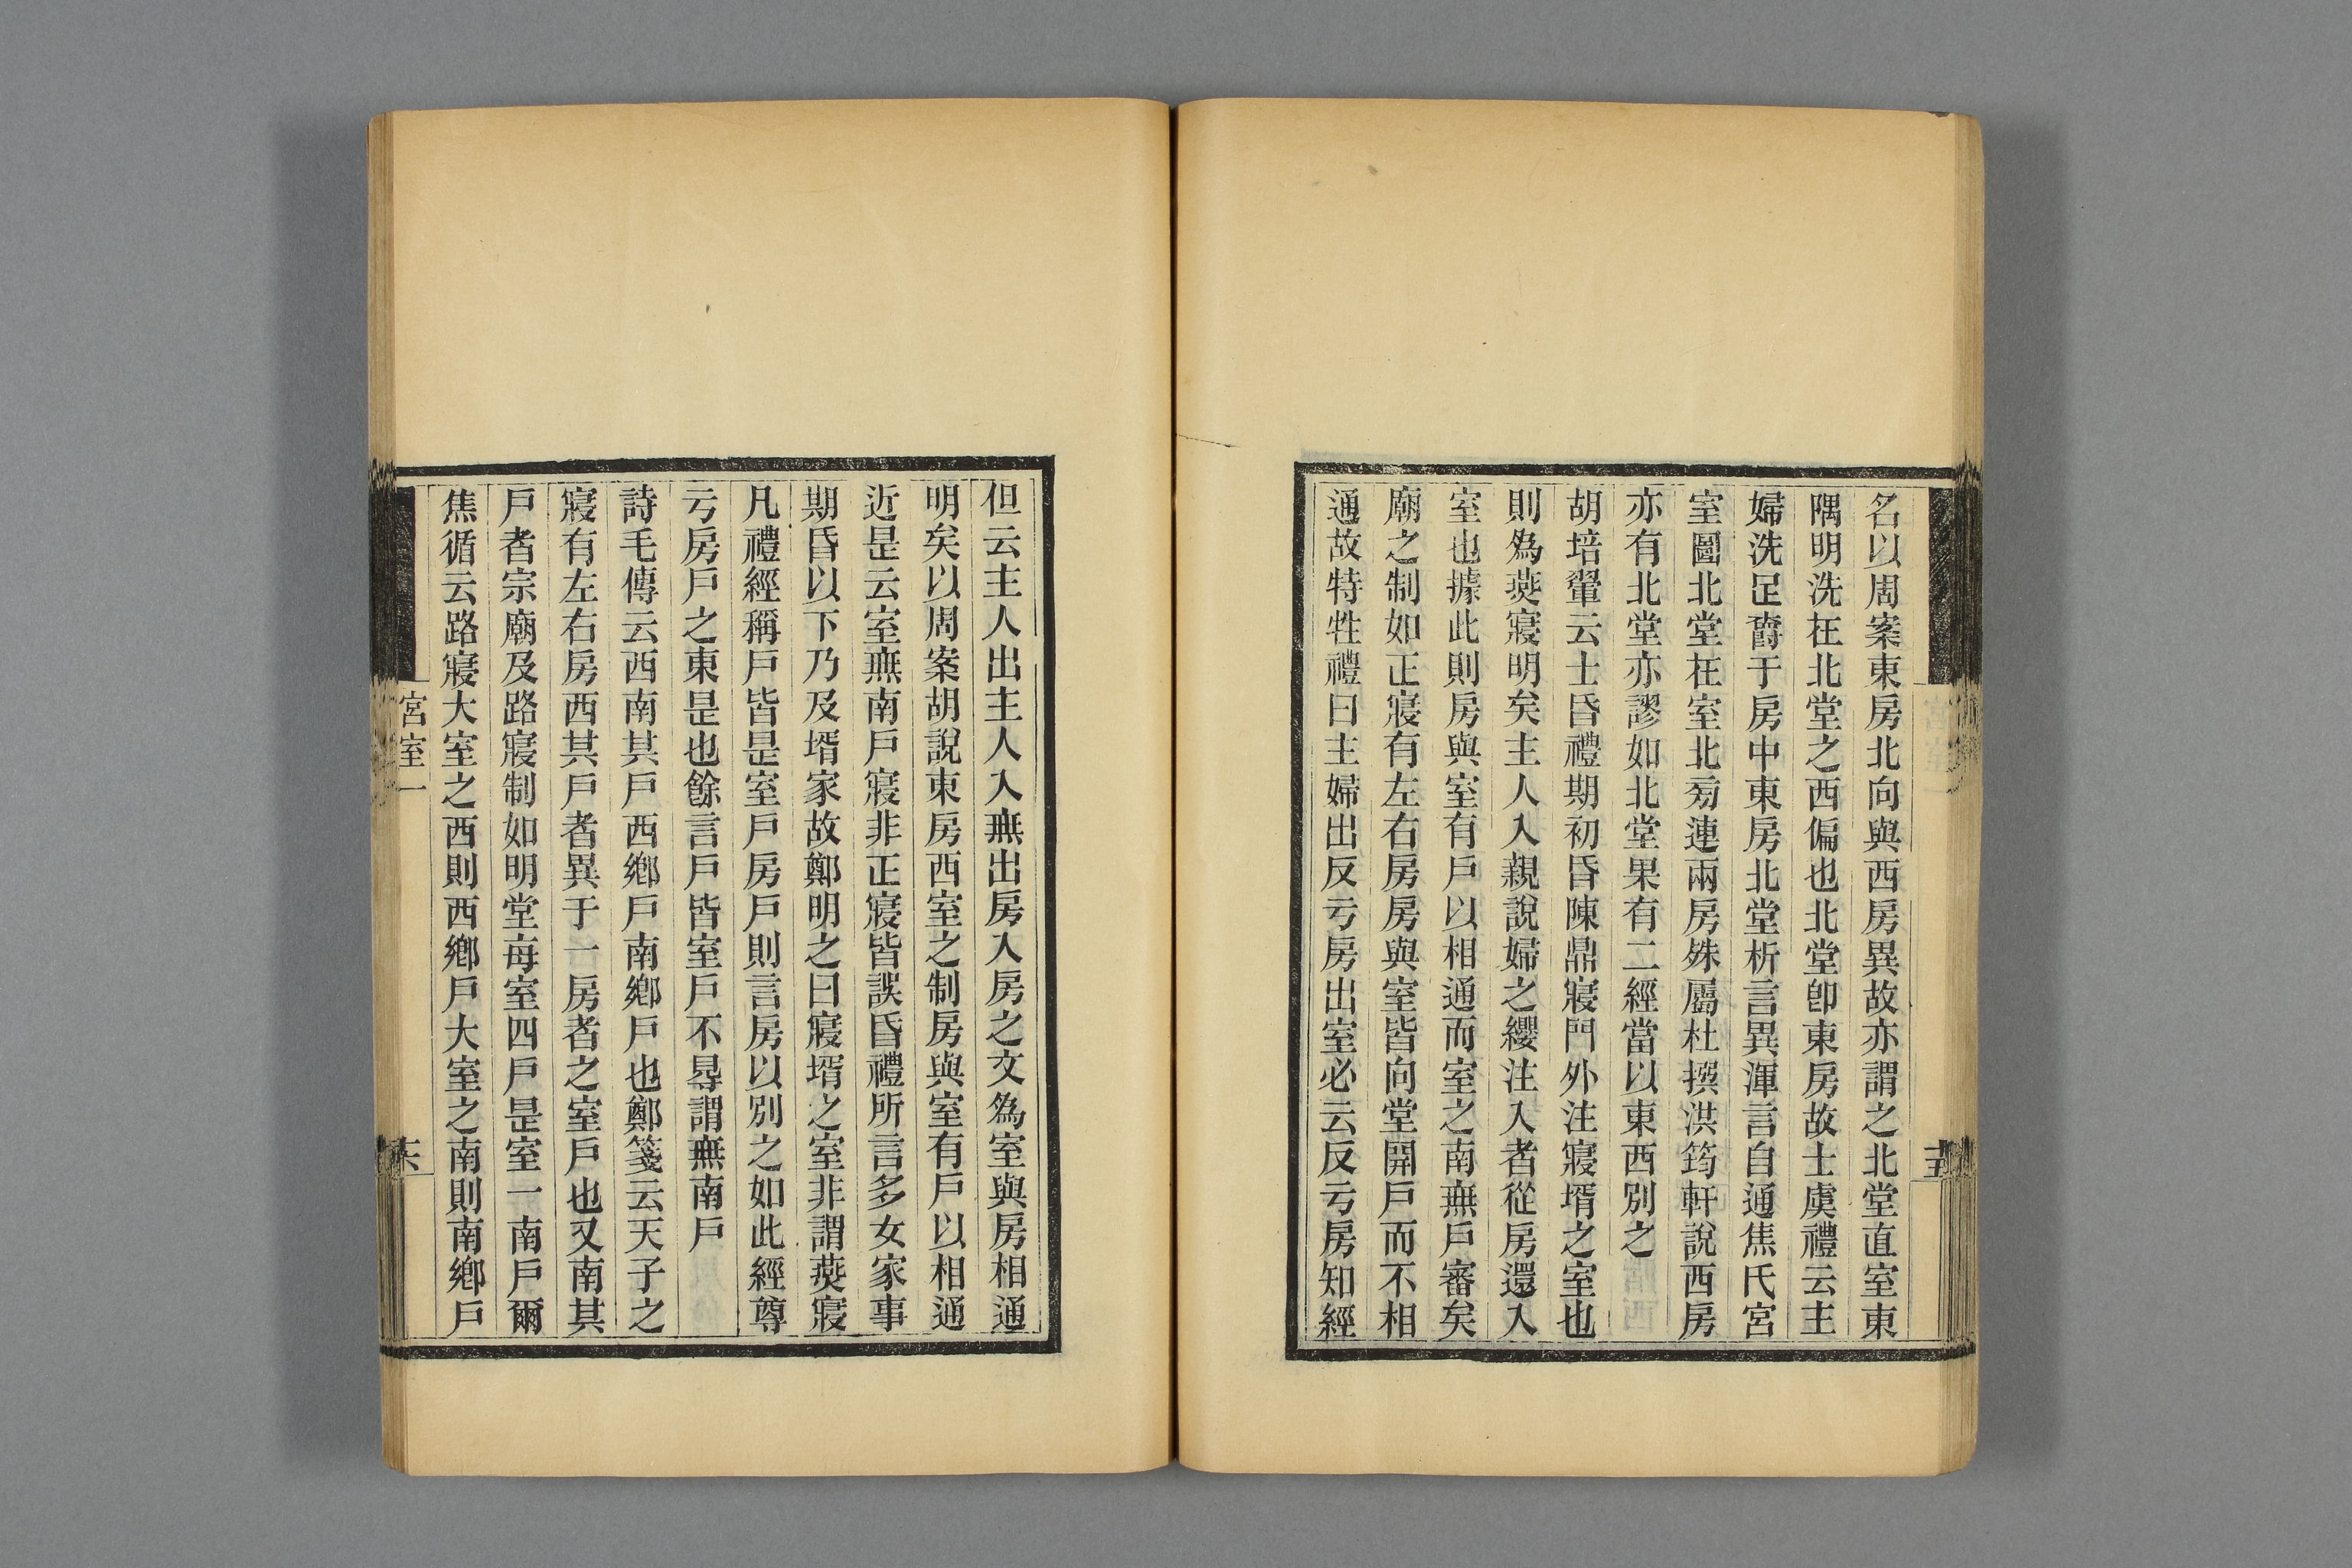 名以周案東房北向與西房異故亦謂之北堂直室東
隅明洗在北堂之西偏也北堂卽東房故士虞禮云主
婦洗足爵于房中東房北堂析言異渾言自通焦氏宮
室圖北堂在室北㫄連兩房殊屬杜撰洪筠軒說西房
亦有北堂亦謬如北堂果有二經當以東西別之
胡培翬云士昏禮期初昏陳鼎寢門外注寢壻之室也
則爲燕寢明矣主人入親說婦之纓注入者從房還入
室也據此則房與室有戶以相通而室之南無戶審矣
廟之制如正寢有左右房房與室皆向堂開戶而不相
通故特牲禮曰主婦出反亏房出室必云反亏房知經
但云主人出主人入無出房入房之文爲室與房相通
明矣以周案胡說東房西室之制房與室有戶以相通
近是云室無南戶寢非正寢皆誤昏禮所言多女家事
期昏以下乃及壻家故鄭明之曰寢壻之室非謂燕寢
凡禮經稱戶皆是室戶房戶則言房以別之如此經尊
亏房戶之東是也餘言戶皆室戶不㝵謂無南戶
詩毛傳云西南其戶西鄉戶南鄉戶也鄭箋云天子之
寢有左右房西其戶者異于一房者之室戶也又南其
戶者宗廟及路寢制如明堂每室四戶是室一南戶爾
焦循云路寢大室之西則西鄉戶大室之南則南鄉戶
宮室一